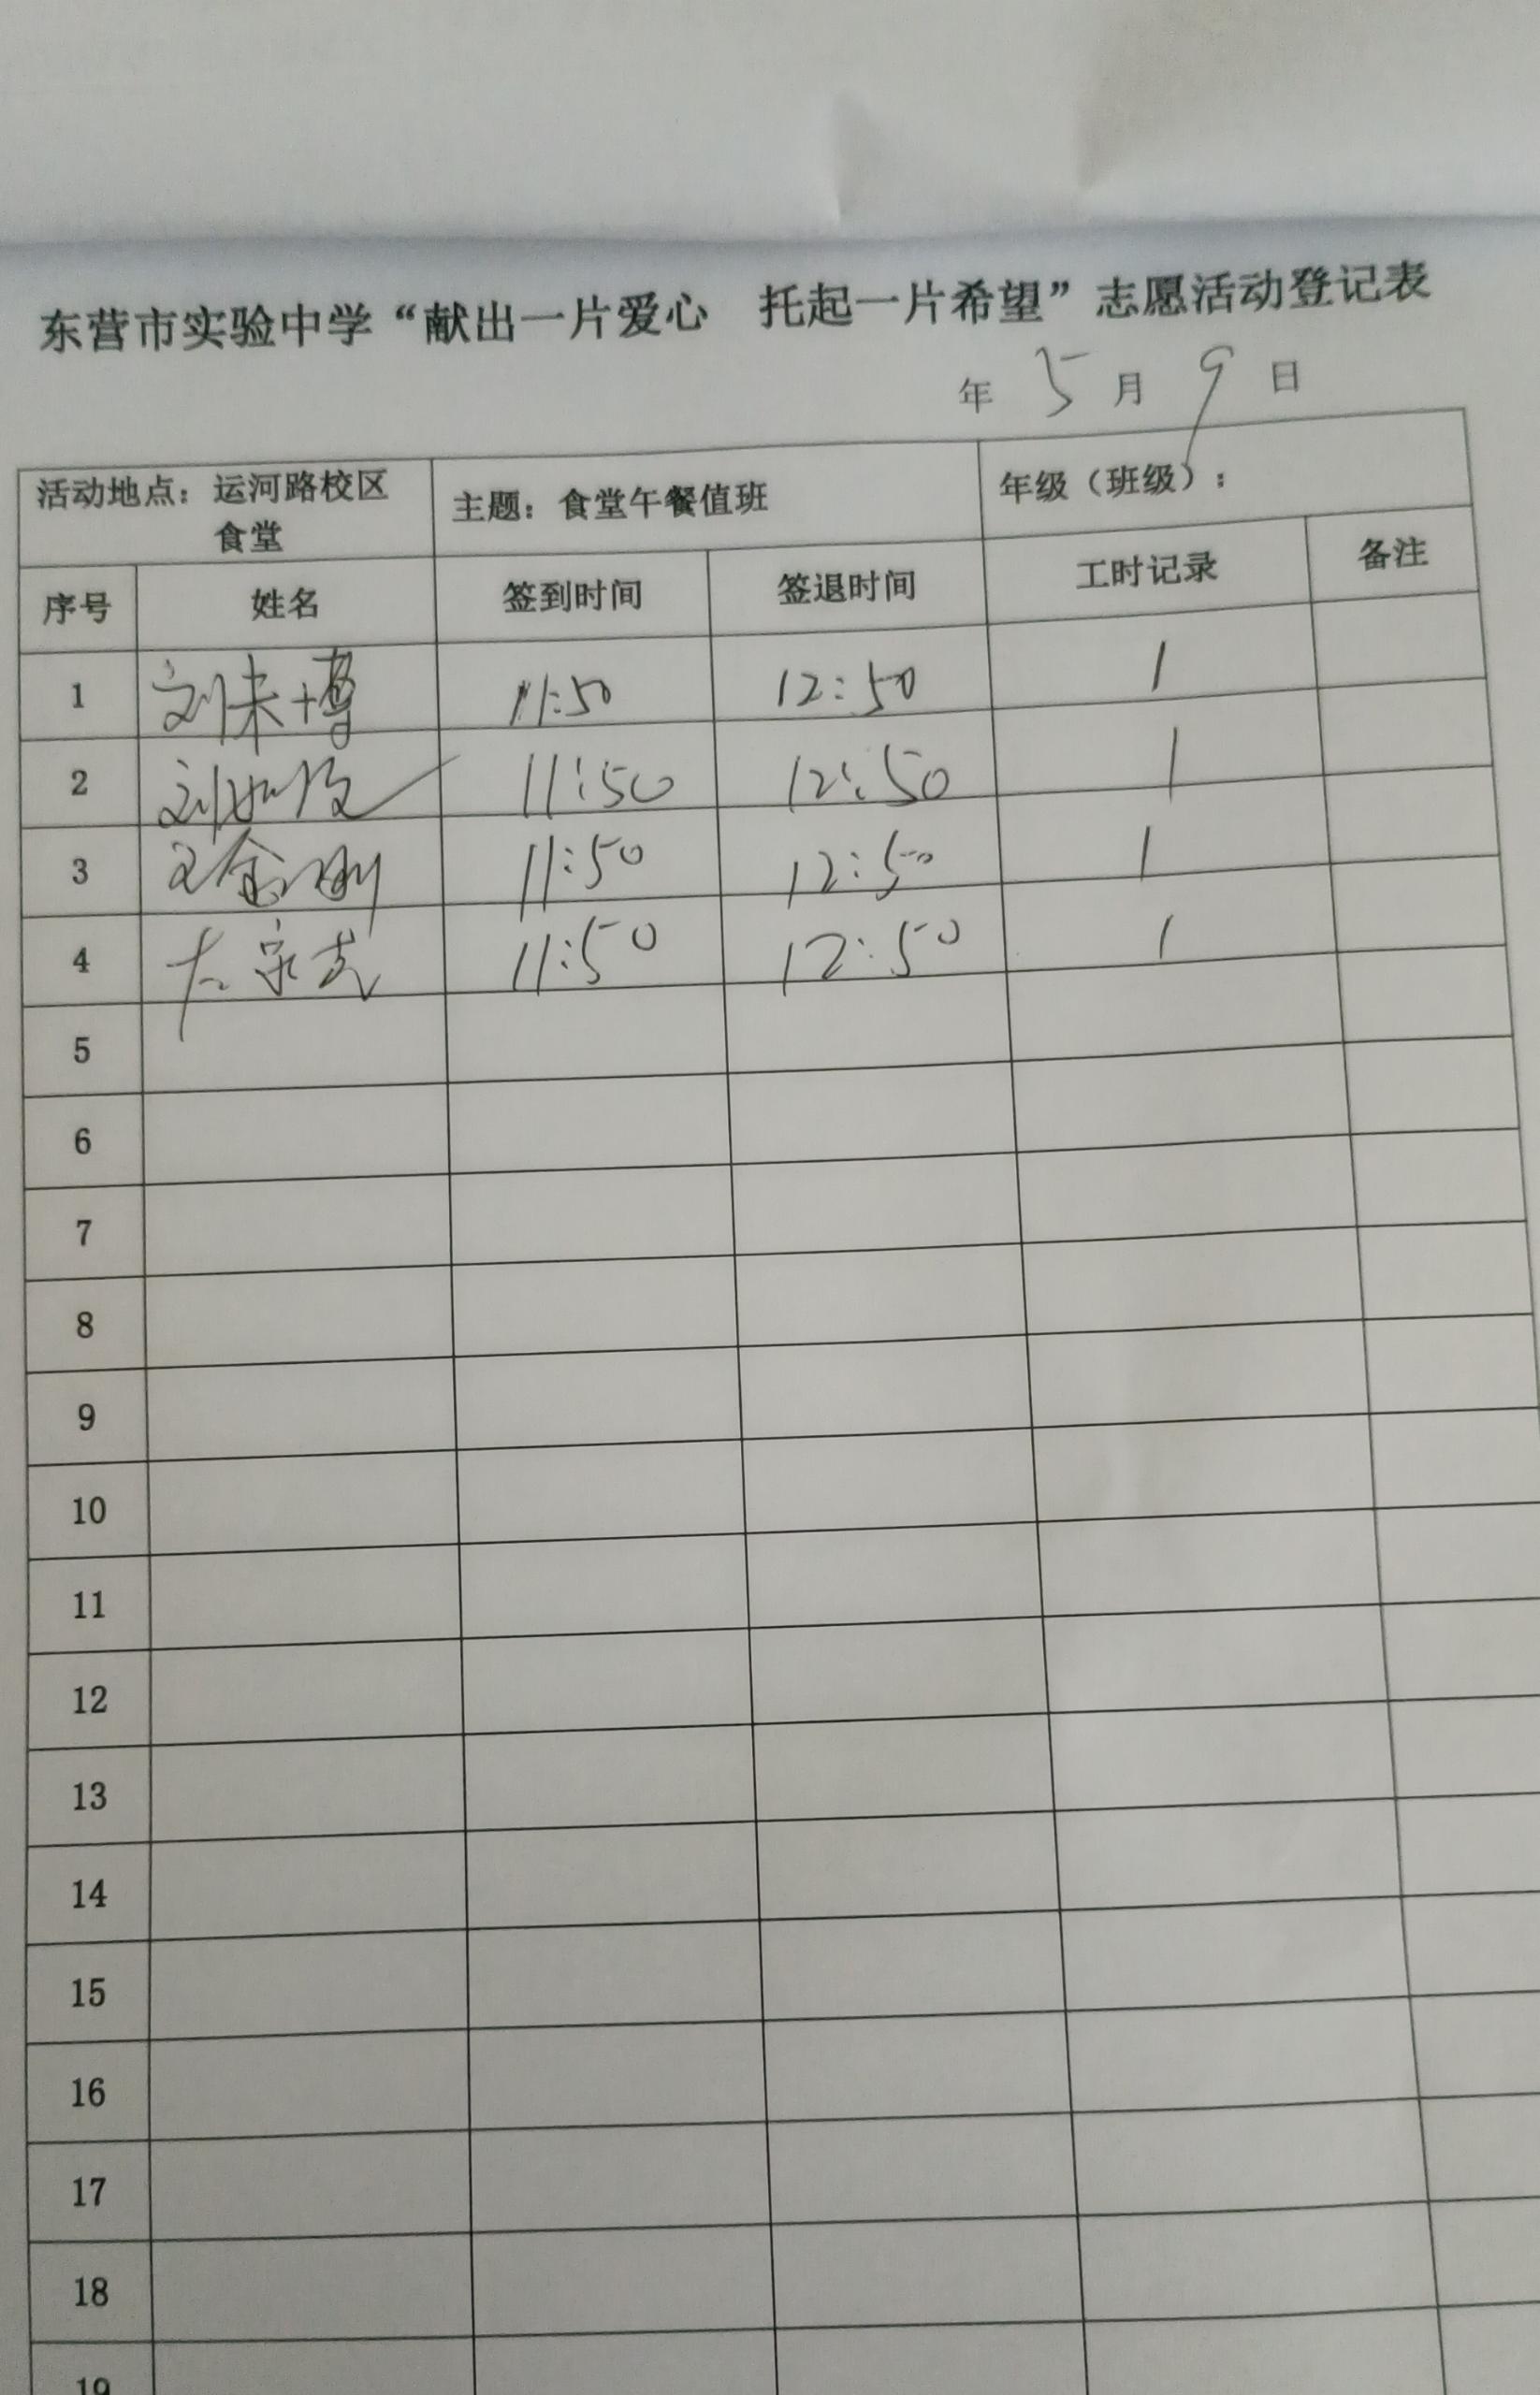 东营市实验中学“献出一片爱心 托起一片希望”志愿活动登记表
年 5 月 9 日
活动地点：运河路校区食堂 主题：食堂午餐值班 年级（班级）：
序号 姓名 签到时间 签退时间 工时记录 备注
1 11:50 12:50 1
2 11:50 12:50 1
3 11:50 12:50 1
4 11:50 12:50 1
5
6
7
8
9
10
11
12
13
14
15
16
17
18
19